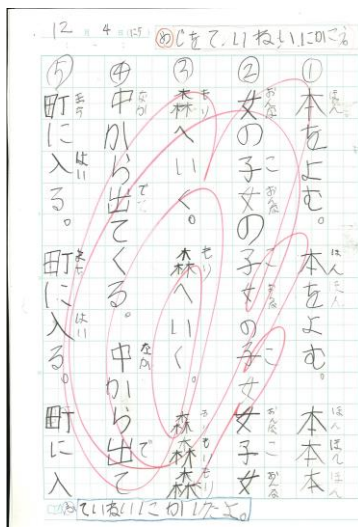 12 4
めじをていねいにかく
①本をよむ。本をよむ。本本本
②女の子女の子女の子女女子女
③森へいく。森へいく。森森森
④中から出てくる。中から出て
⑤町に入る。町に入る。町に入
ていねいにかけたよ。